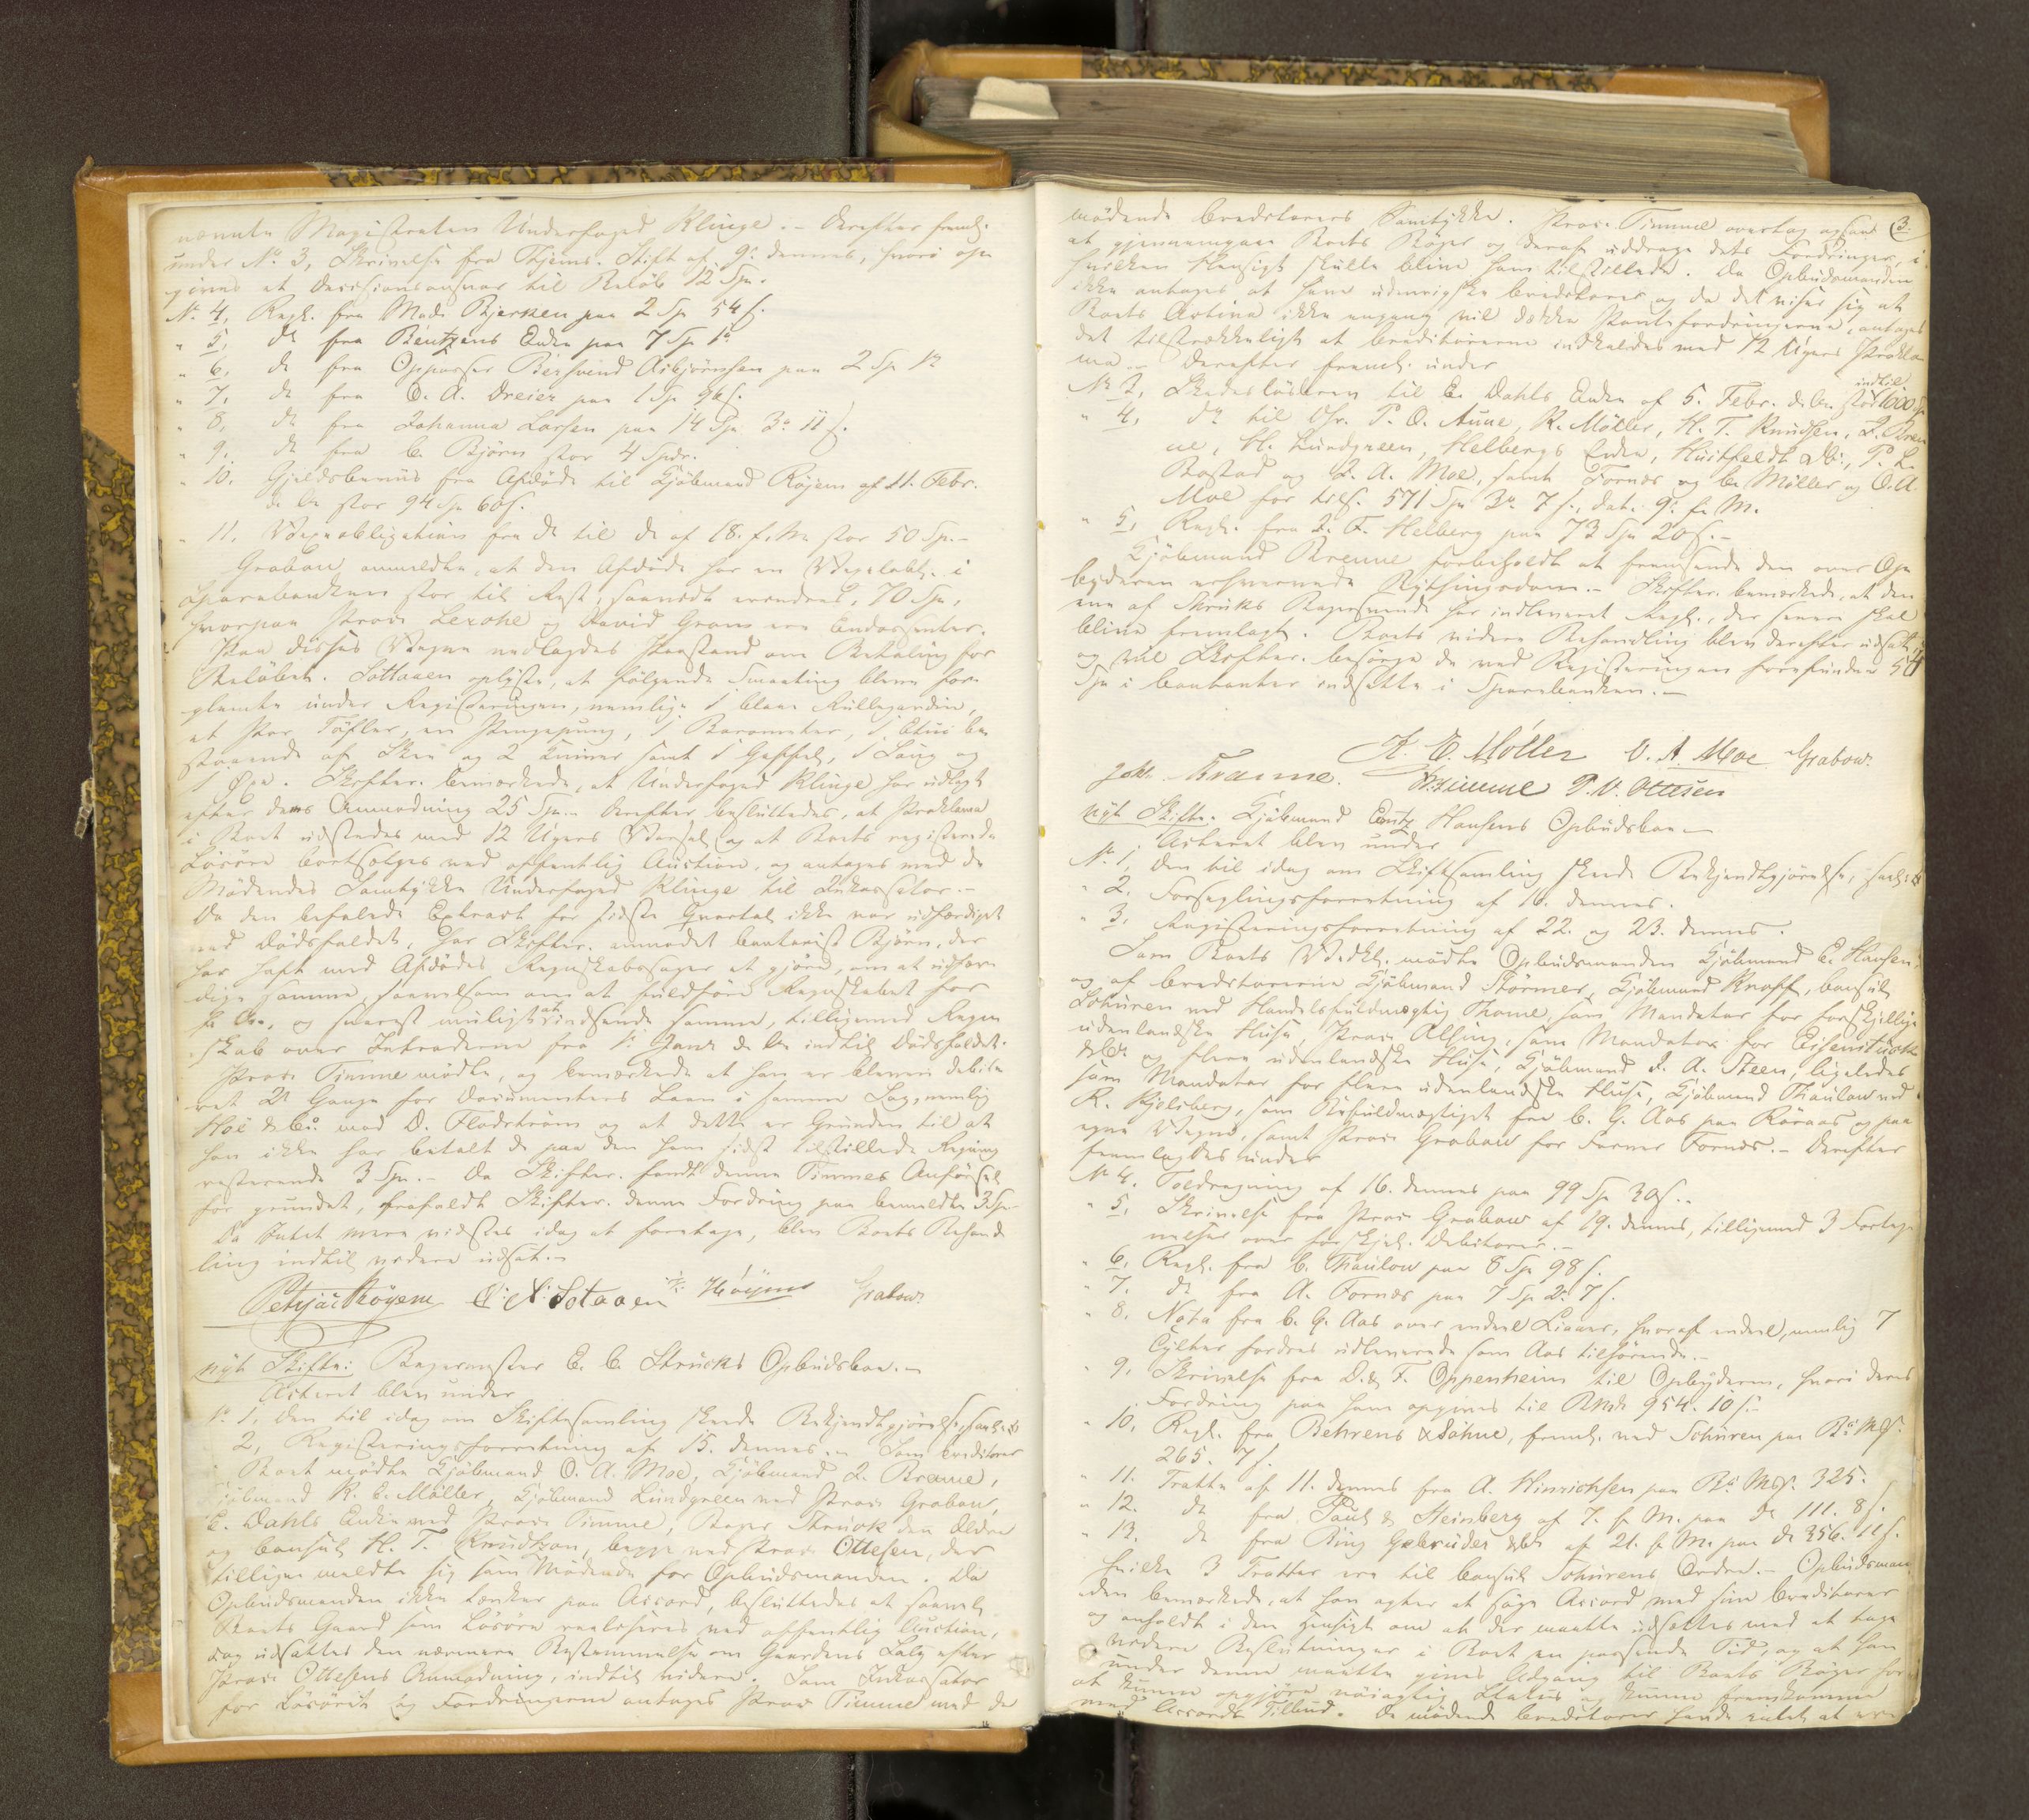 nævnte Magistraten Underfoged Klinge. – Derefter freml.
under No 3, Skrivelse fra Thjems. Stift af 9. dennes, hvori op-
gives et Decisionsansvar til Beløb 12 Spd.
No 4, Regk. fra Mad. Bjerken paa 2 Sp 54 s.
" 5, do fra Bentzens Enke paa 7 Sp 1
" 6, do fra Oppasser Bersvend Asbjørnsen paa 2 Sp
" 7, do fra O. A. Dreier paa 1 Sp 96 s.
" 8, do fra Johanna Larsen paa 14 Spd 3 11 s.
" 9. do fra C. Bjørn stor 4 Spdr.
" 10. Gjeldsbeviis fra Afdøde til Kjøbmand Røyem af 11. Febr.
d. A. stor 94 Spd 60 s.
" 11. Vexelobligation fra do til do af 18. f. M. stor 50 Sp. –
Grabow anmeldte, at den Afdøde har en Vexelobl. i
Sparebanken stor til Rest, saavidt erindres, 70 Spd,
hvorpaa Proc. Lexohe og David Gram ere Endossenter.
Paa disses Vegne nedlagdes Paastand om Betaling for
Beløbet. Sottaaen oplyste, at følgende Smaating bleve for-
glemte under Registreringen, nemlig 1 blaa Rullegardin,
et Par Tøfler, en Pengepung, 1 Barometer, 1 Etui be-
staaende af Skee og 2 Knive samt 1 Gaffel, 1 Saug og
1 Øxe. Skifter. bemærkede, at Underfoged Klinge har udlagt
efter dens Anmodning 25 Spd. – Derefter besluttedes, at Proklama
i Boet udstedes med 12 Ugers Varsel og at Boets registrerede
Løsøre bortsælges ved offentlig Auction, og antages med de
Mødendes Samtykke Underfoged Klinge til Inkassator. –
Da den befalede Extract for sidste Qvartal ikke var udfærdiget
ved Dødsfaldet, har Skifter. anmodet Cantorist Bjørn, der
har haft med Afdødes Regnskabssager at gjøre, om at udfær-
dige samme, saavelsom om at fuldføre Regnskabet for
f. A., og snarest muligt at indsende samme, tilligemed Regn-
skab over Intraderne fra 1. Janr. d. A. indtil Dødsfaldet.
Proc. Timme mødte, og bemærkede at han er bleven debite-
ret 2 Gange for Documenters Laan i samme Sag, nemlig
Høe & Co. mod O. Flodstrøm og at dette er Grunden til at
han ikke har betalt de paa den ham sidst tilstillede Regning
resterende 3 Spd. – Da Skifter. fandt denne Timmes Anførsel
for grundet, frafaldt Skifter. denne Fordring paa bemeldte 3 Sp
Da Intet mere vidstes idag at foretage, blev Boets Behand-
ling indtil videre udsat. –
Petrja: Røyem O: N: Sotaaen Höyem Grabow.
Nyt Skifte: Bagermester E. C. Strucks Opbudsboe. –
Acteret blev under
No 1, den til idag om Skiftesamling skeede Bekjendtgjørelse,
2, Registreringsforretning af 15. dennes. – Som Creditorer
i Boet mødte Kjøbmand O. A. Moe, Kjøbmand J. Bræmme,
Kjøbmand K. E. Møller, Kjøbmand Lundgreen ved Proc. Grabow,
E. Dahls Enke ved Proc. Timme, Bager Struck den Ældre
og Consul H. T. Knudtzon, begge ved Proc. Ottesen, der
tillige meldte sig som Mødende for Opbudsmanden. Da
Opbudsmanden ikke tænker paa Accord, besluttedes at saavel
Boets Gaard som Løsøre realiseres ved offentlig Auction,
dog udsattes den nærmere Bestemmelse om Gaardens Salg efter
Proc. Ottesens Anmodning, indtil videre. Som Inkassator
for Løsøret og Fordringerne antages Proc. Timme med de
3.
mødende Creditorers Samtykke. Proc. Timme overtog ogsaa
at gjennemgaae Boets Bøger og deraf uddrage dets Fordringer, i
hvilken Hensigt skulle blive ham tilstillede. Da Opbudsmanden
ikke antages at have udenrigske Creditorer og da det viser sig at
Boets Activa ikke engang vil dække Panteforderingerne, antages
det tilstrækkeligt at Creditorerne indkaldes med 12 Ugers Prokla-
ma. – Derefter freml. under
indtil
No 3, Skadesløsbrev til E. Dahls Enke af 5. Febr. d. A. stor 1600 Sp
" 4, do til Chr. P. O. Aune, K. Møller, H. T. Knudsen, J. Bræm-
me, H. Lundgreen, Helbergs Enke, Huitfeldt & Co., P. L.
Bostad og O. A. Moe, samt Fornæs og C. Møller og O. A.
Moe for tils. 571 Spd 3 7 s., dat. 9. f. M.
" 5, Regk. fra J. F. Helberg paa 73 Spd 20 s. –
Kjøbmand Bræmme forbeholdt at fremsende den over Op-
byderen erhvervede Rytsingsdom. – Skifter. bemærkede, at den
ene af Strucks Bagersvende har indleveret Regk., der senere skal
blive fremlagt. Boets videre Behandling blev derefter udsat,
og vil Skifter. besørge de ved Registreringen forefundne 54
Spd i Contanter indsatte i Sparebanken. –
K. E. Möller O. A. Moe Grabow.
Johs. Bræmme. Timme P. V. Ottesen
Nyt Skifte. Kjøbmand Entz Hansens Opbudsboe –
Acteret blev under
No 1, den til idag om Skiftesamling skeede Bekjendtgjørelse,
" 2. Forseglingsforretning af 16. dennes.
" 3, Registreringsforretning af 22. og 23. dennes.
Som Boets Vedk. mødte Opbudsmanden Kjøbmand E. Hansen,
og af Creditorerne Kjøbmand Størmer, Kjøbmand Knoff, Consul
Schüren ved Handelsfuldmægtig Thome, som Mandatar for forskjellige
udenlandske Huse, Proc. Alsing, som Mandatar for Eisenstuck
& Co. og flere udenlandske Huse, Kjøbmand J. A. Steen, ligeledes
som Mandatar for flere udenlandske Huse, Kjøbmand Thaulow ved
K. Kjelsberg, som Befuldmægtiget fra C. G. Aas paa Røraas og paa
egne Vegne, samt Proc. Grabow for Farver Fornæs. – Derefter
fremlagdes under
No 4. Toldregning af 16. dennes paa 99 Sp 30 s. –
" 5, Skrivelse fra Proc. Grabow af 19. dennes, tilligemed 3 Forteg-
nelser over forskjel. Debitorer. –
" 6, Regk. fra C. Thaulow paa 8 Sp 98 s.
" 7. do fra A. Fornæs paa 7 Sp 2 7 s.
" 8. Nota fra C. G. Aas over endeel Liaaer, hvoraf endeel, nemlig 7
Tylter fordres udleverede som Aas tilhørende. –
" 9, Skrivelse fra D. & F. Oppenheim til Opbyderen, hvori deres
Fordring paa ham opgives til Bmk 954. 10 s. –
" 10, Regk. fra Behrens & Söhne, freml. ved Schüren paa Bo Mk.
265. 7 s.
" 11. Tratte af 11. dennes fra A. Hinrichsen paa Bo Mk. 325.
" 12. do fra Paul & Steinberg af 7. f. M. paa do 111. 8 s.
" 13. do fra Ring Gebrüder & Co. af 21. f. M. paa do 356. 11 s.
hvilke 3 Tratter ere til Consul Schürens Ordre. – Opbudsman-
den bemærkede, at han agter at søge Accord med sine Creditorer
og anholdt i den Hensigt om at der maatte udsættes med at tage
videre Beslutninger i Boet en passende Tid, og at han
under denne maatte gives Adgang til Boets Bøger for
at kunne opgjøre nøiagtig Status og kunne fremkomme
med Accords Tilbud. De mødende Creditorer havde intet at er-